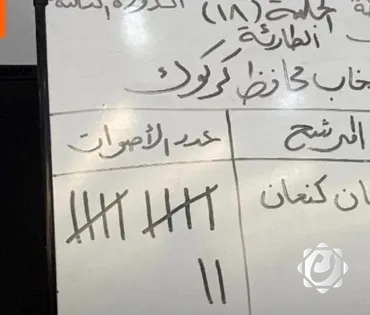 الجلسة (١٨) الدورة الثالثة
الطارئة
محافظ كركوك
المرشح عدد الأصوات
كنعان